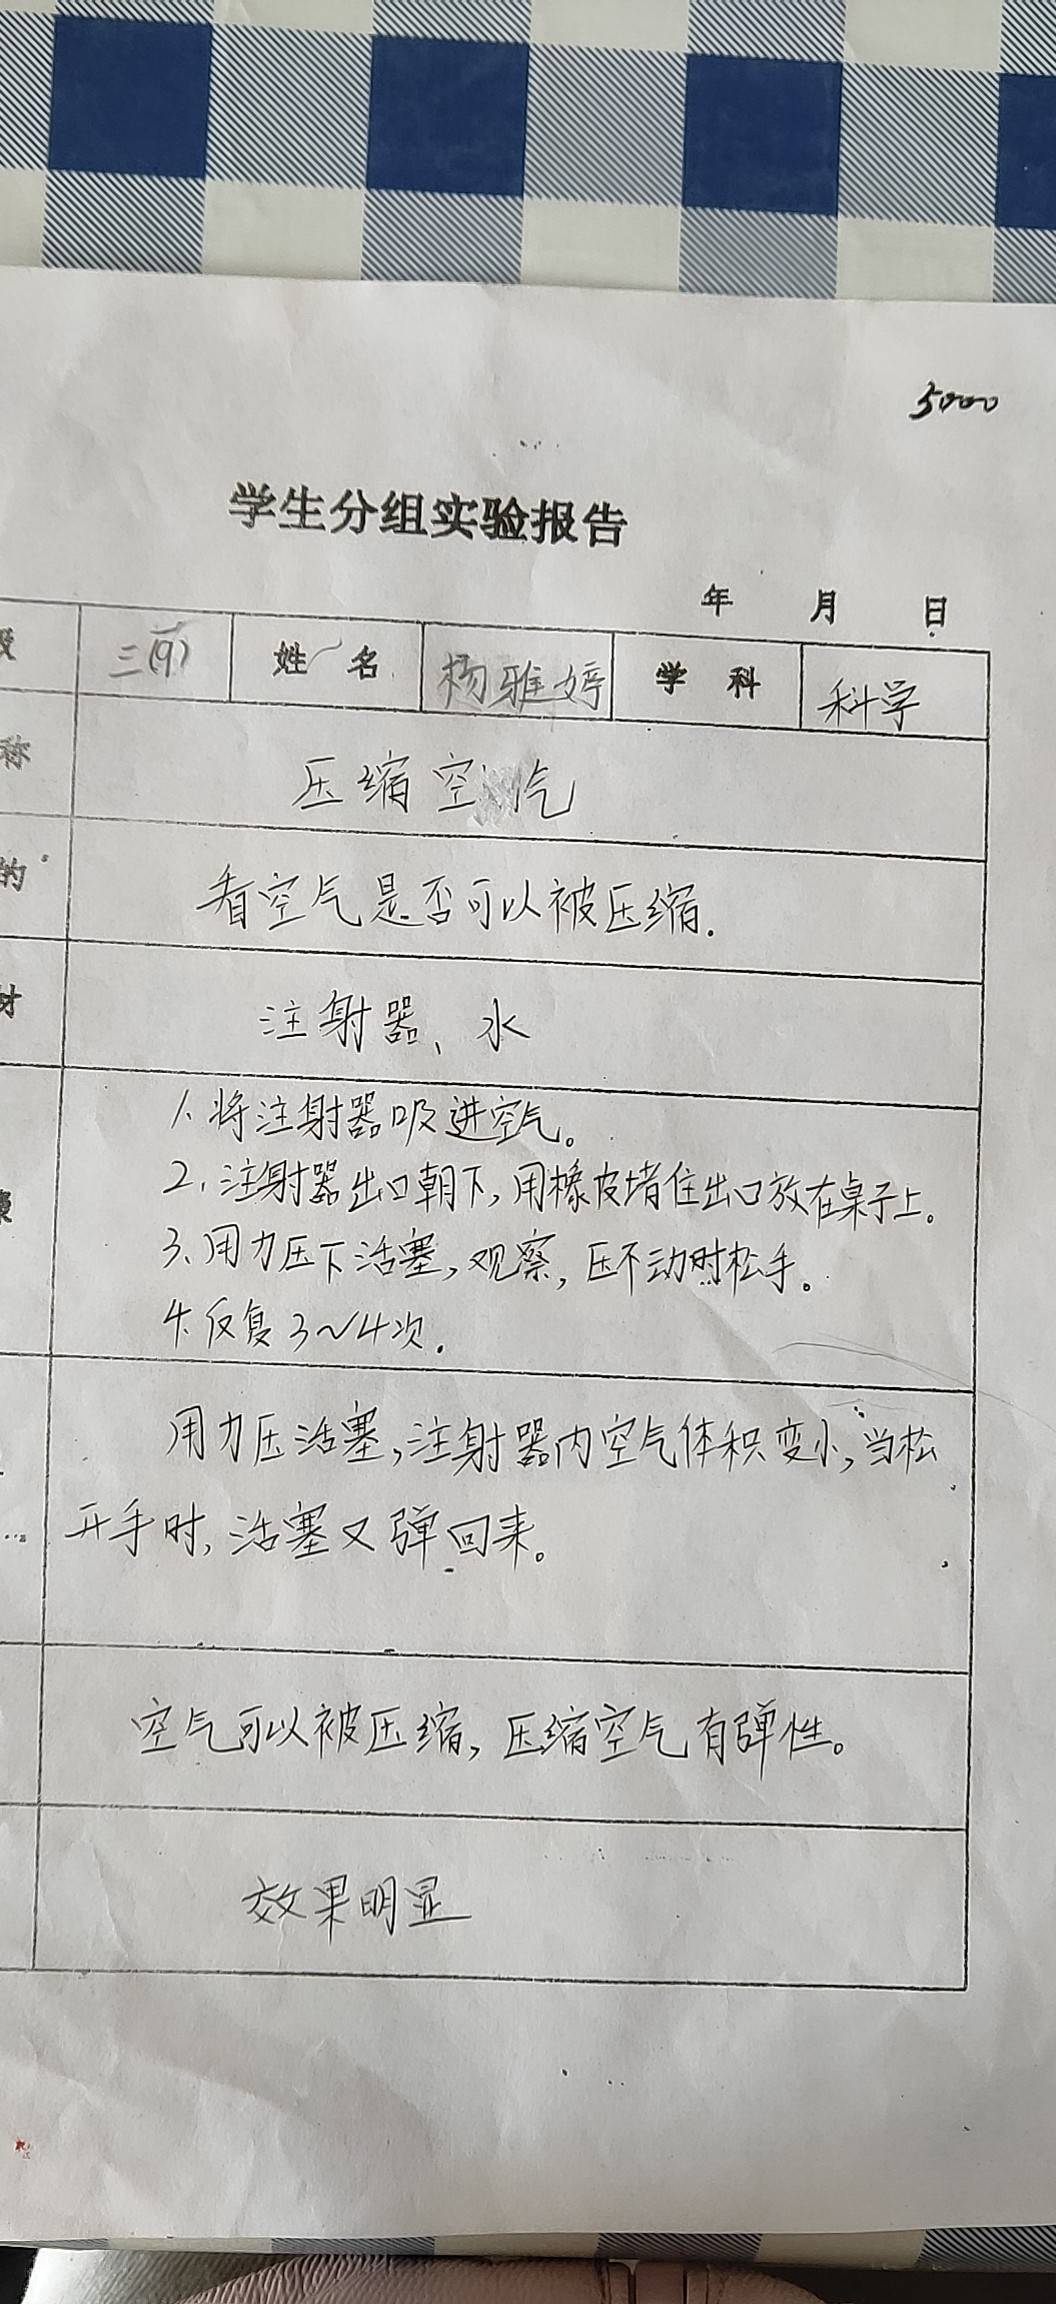 5000
学生分组实验报告
年 月 日
级 三(9) 姓名 杨雅婷 学科 科学
称 压缩空气
的 看空气是否可以被压缩.
材 注射器、水
1.将注射器吸进空气。
2.注射器出口朝下,用橡皮堵住出口放在桌子上。
骤 3.用力压下活塞,观察,压不动时松手。
4.反复3~4次.
用力压活塞,注射器内空气体积变小,当松
开手时,活塞又弹回来。
空气可以被压缩,压缩空气有弹性。
效果明显